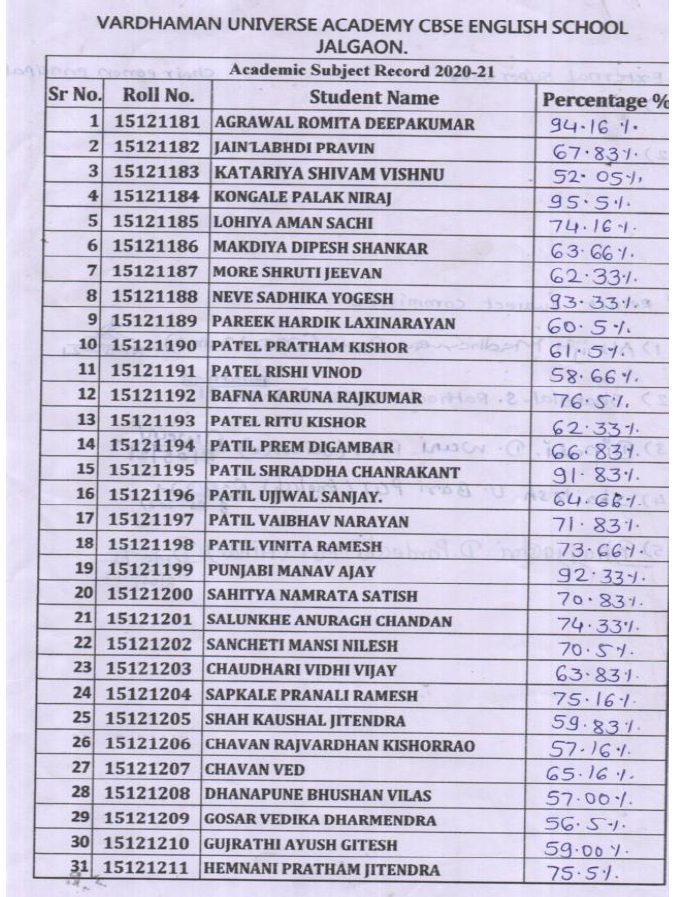 VARDHAMAN UNIVERSE ACADEMY CBSE ENGLISH SCHOOL
JALGAON.
Academic Subject Record 2020-21
Sr No. Roll No. Student Name Percentage %
1 15121181 AGRAWAL ROMITA DEEPAKUMAR 94.16 %.
2 15121182 JAIN LABHDI PRAVIN 67.83%.
3 15121183 KATARIYA SHIVAM VISHNU 52.05%.
4 15121184 KONGALE PALAK NIRAJ 95.5%.
5 15121185 LOHIYA AMAN SACHI 74.16%.
6 15121186 MAKDIYA DIPESH SHANKAR 63.66%.
7 15121187 MORE SHRUTI JEEVAN 62.33%.
8 15121188 NEVE SADHIKA YOGESH 93.33%.
9 15121189 PAREEK HARDIK LAXINARAYAN 60.5%.
10 15121190 PATEL PRATHAM KISHOR 61.5%.
11 15121191 PATEL RISHI VINOD 58.66%.
12 15121192 BAFNA KARUNA RAJKUMAR 76.5%.
13 15121193 PATEL RITU KISHOR 62.33%.
14 15121194 PATIL PREM DIGAMBAR 66.83%.
15 15121195 PATIL SHRADDHA CHANRAKANT 91.83%.
16 15121196 PATIL UJJWAL SANJAY. 64.66%.
17 15121197 PATIL VAIBHAV NARAYAN 71.83%.
18 15121198 PATIL VINITA RAMESH 73.66%.
19 15121199 PUNJABI MANAV AJAY 92.33%.
20 15121200 SAHITYA NAMRATA SATISH 70.83%.
21 15121201 SALUNKHE ANURAGH CHANDAN 74.33%.
22 15121202 SANCHETI MANSI NILESH 70.5%.
23 15121203 CHAUDHARI VIDHI VIJAY 63.83%.
24 15121204 SAPKALE PRANALI RAMESH 75.16%.
25 15121205 SHAH KAUSHAL JITENDRA 59.83%.
26 15121206 CHAVAN RAJVARDHAN KISHORRAO 57.16%.
27 15121207 CHAVAN VED 65.16%.
28 15121208 DHANAPUNE BHUSHAN VILAS 57.00%.
29 15121209 GOSAR VEDIKA DHARMENDRA 56.5%.
30 15121210 GUJRATHI AYUSH GITESH 59.00%.
31 15121211 HEMNANI PRATHAM JITENDRA 75.5%.